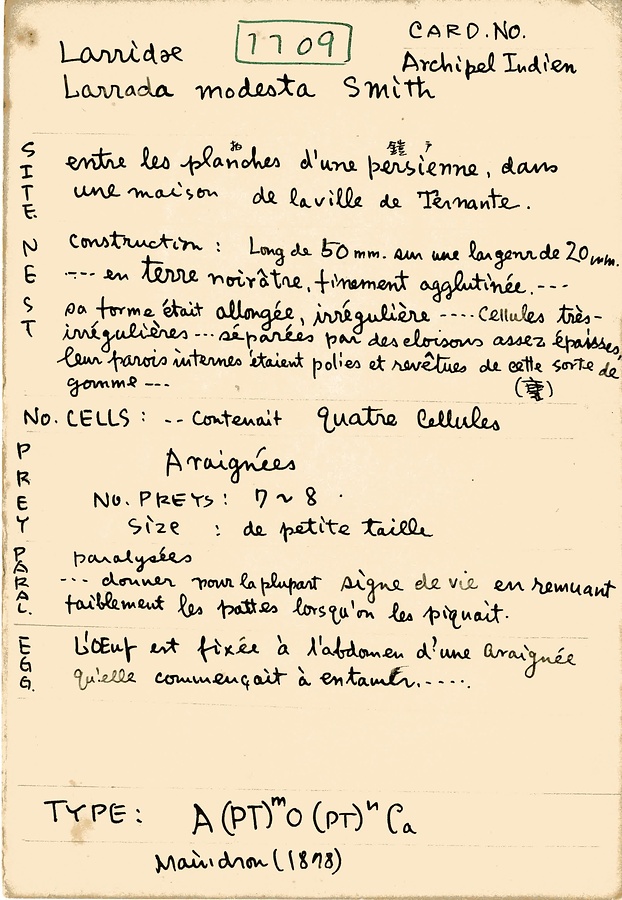 CARD.NO.
Larridae 1709 Archipel Indien
Larrada modesta Smith
SITE entre les planches d'une persienne, dans
une maison de la ville de Ternante.
NEST Construction : Long de 50 mm. sur une largeur de 20 mm.
--- en terre noirâtre, finement agglutinée. ---
sa forme était allongée, irrégulière ---- Cellules très-
irrégulières --- séparées par des cloisons assez épaisses,
leur parois internes étaient polies et revêtues de cette sorte de
gomme ---
No. CELLS : -- Contenait quatre Cellules
PREY Araignées
NO. PREYS : 7 ~ 8
Size : de petite taille
PARAL. paralysées
--- donner pour la plupart signe de vie en remuant
faiblement les pattes lorsqu'on les piquait.
EGG. L'Œuf est fixée à l'abdomen d'une araignée
qu'elle commençait à entamer. -----.
TYPE : A (PT)ᵐ O (PT)ⁿ Ca
Maindron (1878)